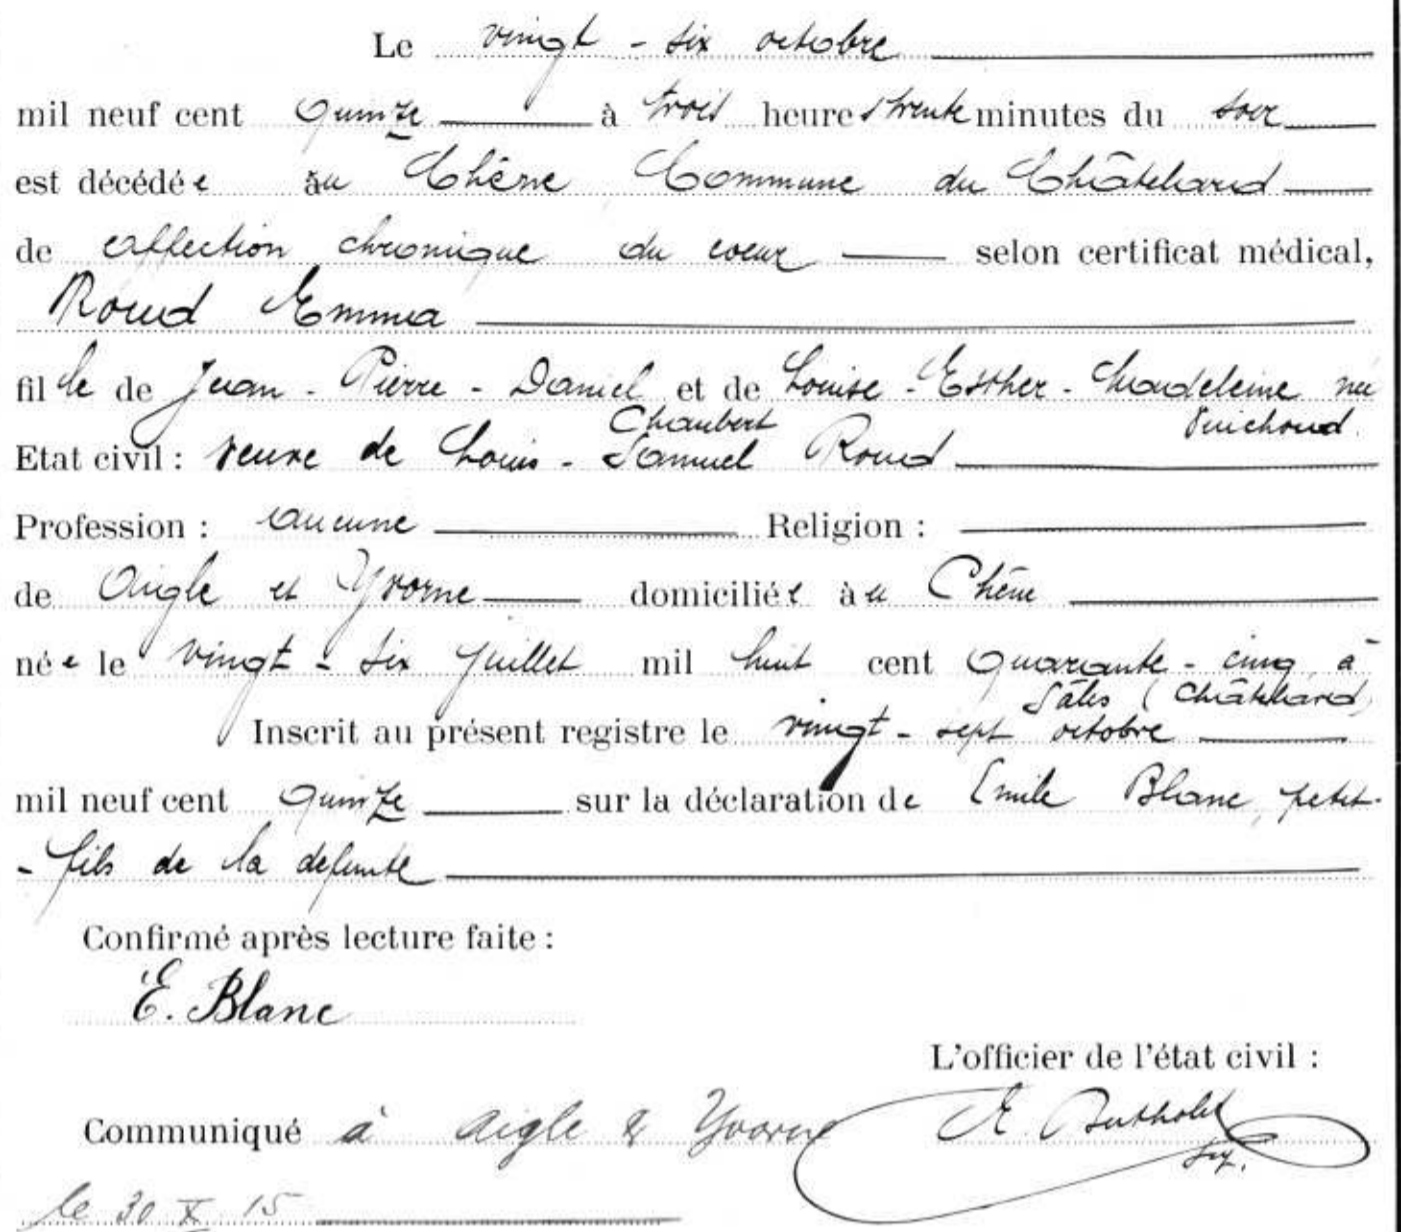 Le vingt - six octobre
mil neuf cent quinze à trois heures trente minutes du soir
est décédée au Chêne Commune du Châtelard
de affection chronique du coeur selon certificat médical,
Roud Emma
fille de Jean - Pierre - Daniel et de Louise - Esther - Madeleine née
Chaubert Vuichoud.
Etat civil : veuve de Louis - Samuel Roud
Profession : aucune Religion :
de Aigle et Yvorne domiciliée au Chêne
née le vingt - six juillet mil huit cent quarante - cinq à
Sâles (Châtelard)
Inscrit au présent registre le vingt - sept octobre
mil neuf cent quinze sur la déclaration de Emile Blanc, petit-
- fils de la defunte
Confirmé après lecture faite :
E. Blanc
L'officier de l'état civil :
Communiqué à Aigle & Yvorne
le 30 X 15